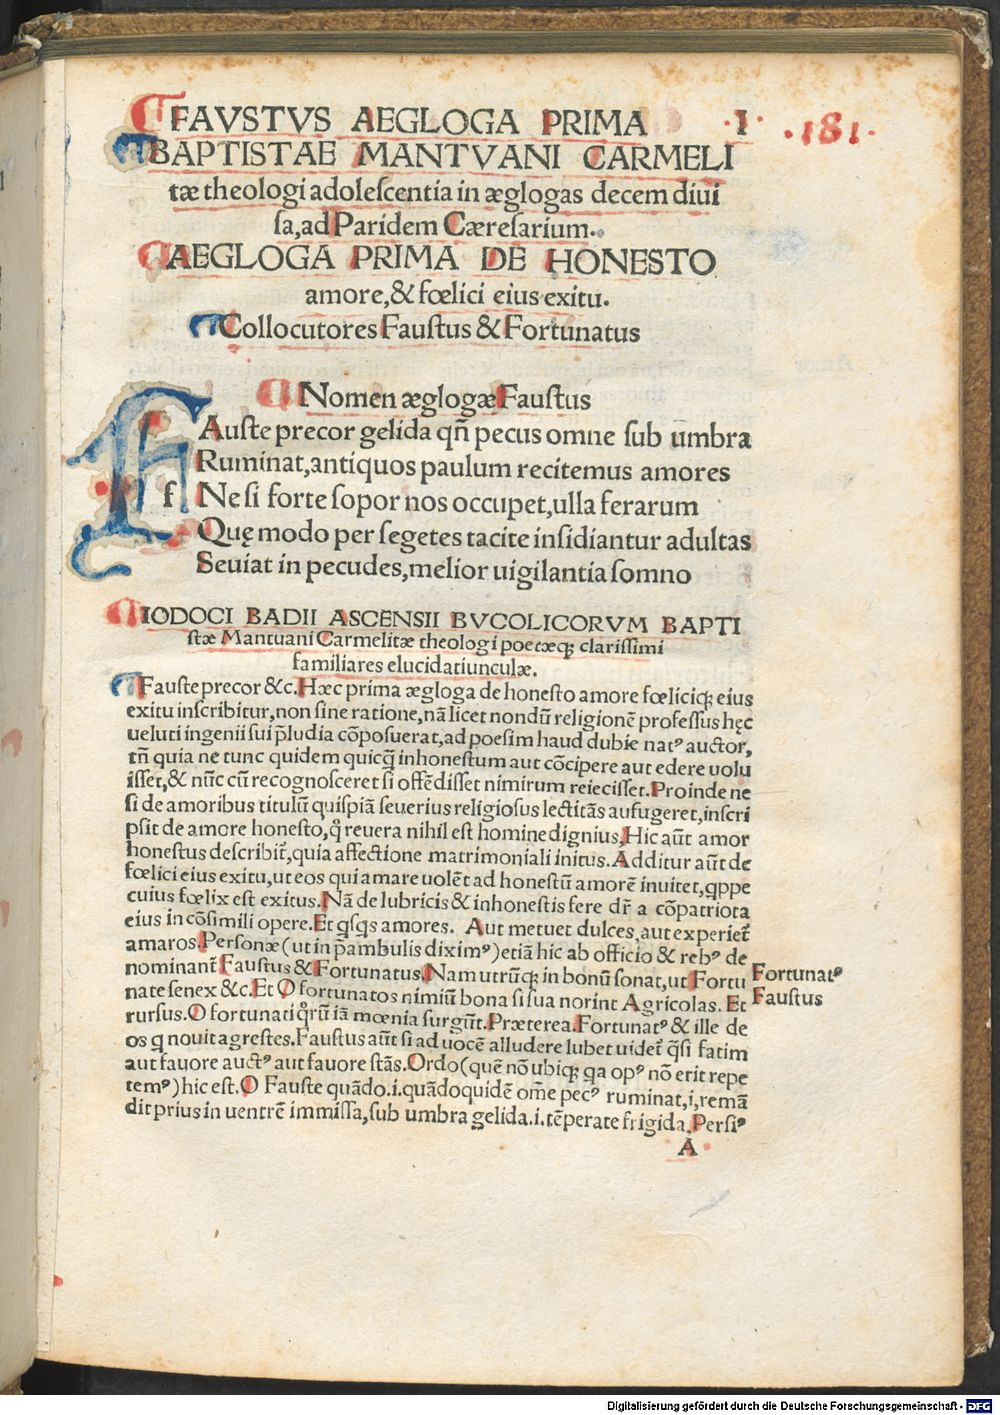 FAVSTVS AEGLOGA PRIMA I
.181.
BAPTISTAE MANTVANI CARMELI
tæ theologi adolescentia in æglogas decem diui
sa, ad Paridem Cæresarium.
AEGLOGA PRIMA DE HONESTO
amore, & fœlici eius exitu.
Collocutores Faustus & Fortunatus
Nomen æglogæ Faustus
f
Auste precor gelida qñ pecus omne sub umbra
Ruminat, antiquos paulum recitemus amores
Ne si forte sopor nos occupet, ulla ferarum
Quę modo per segetes tacite insidiantur adultas
Seuiat in pecudes, melior uigilantia somno
IODOCI BADII ASCENSII BVCOLICORVM BAPTI
stæ Mantuani Carmelitæ theologi poetæqꝫ clarissimi
familiares elucidatiunculæ.
Fauste precor &c. Hæc prima ægloga de honesto amore fœliciqꝫ eius
exitu inscribitur, non sine ratione, nā licet nondū religionē professus hęc
ueluti ingenii sui p̄ludia cōposuerat, ad poesim haud dubie natꝰ auctor,
tñ quia ne tunc quidem quicq̄ inhonestum aut cōcipere aut edere uolu
isset, & nūc cū recognosceret si offēdisset nimirum reiecisset. Proinde ne
si de amoribus titulū quispiā seuerius religiosus lectitās aufugeret, inscri
psit de amore honesto, q̊ reuera nihil est homine dignius, Hic aūt amor
honestus describit̄, quia affectione matrimoniali initus. Additur aūt de
fœlici eius exitu, ut eos qui amare uolēt ad honestū amorē inuitet, ꝗppe
cuius fœlix est exitus. Nā de lubricis & inhonestis fere dr̄ a cōpatriota
eius in cōsimili opere. Et ꝗsꝗs amores. Aut metuet dulces, aut experiet̄
amaros. Personæ (ut in p̄ambulis diximꝰ) etiā hic ab officio & rebꝰ de
nominant̄ Faustus & Fortunatus. Nam utrūqꝫ in bonū sonat, ut Fortu
nate senex &c. Et O fortunatos nimiū bona si sua norint Agricolas. Et
rursus. O fortunati q̊rū iā mœnia surgūt. Præterea. Fortunatꝰ & ille de
os ꝗ nouit agrestes. Faustus aūt si ad uocē alludere lubet uidet̄ q̄si fatim
aut fauore auctꝰ aut fauore stās. Ordo (quē nō ubiqꝫ ꝗa opꝰ nō erit repe
temꝰ) hic est. O Fauste quādo .i. quādoquidē om̄e pecꝰ ruminat, i, remā
dit prius in uentrē immissa, sub umbra gelida .i. tēperate frigida, Persiꝰ
A
Fortunatꝰ
Faustus
Digitalisierung gefördert durch die Deutsche Forschungsgemeinschaft - DFG